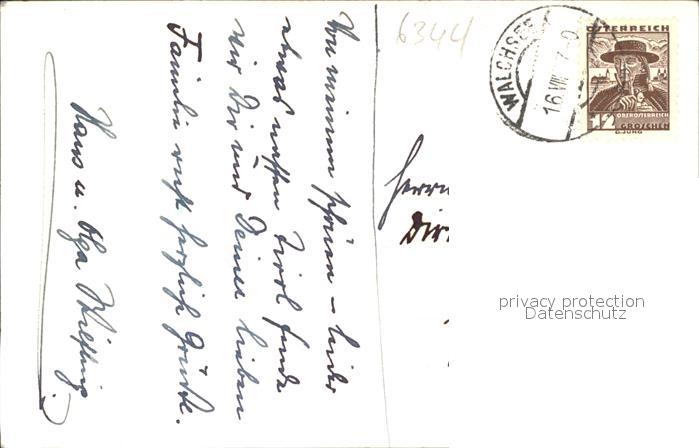 Von meinem schönen – leider
etwas nassen Tirol sende
wir Dir und Deiner lieben
Familie recht herzliche Grüße.
Hans u. Olga
6344
WALCHSEE
16.VIII.
ÖSTERREICH
OBERÖSTERREICH
12 GROSCHEN
G.JUNG
Herrn
Dir
privacy protection
Datenschutz